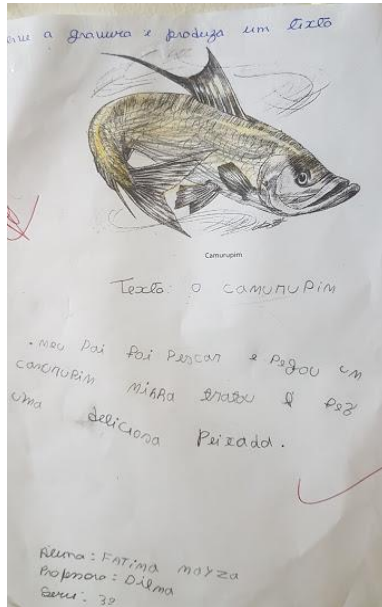 a gravura e produza um texto
Camurupim
Texto: O camurupim
. meu pai foi pescar e pegou um
camurupim minha tratou e fez
uma deliciosa peixada.
Aluna: FATIMA MAYZA
Professora: Dilma
Serie: 3ª